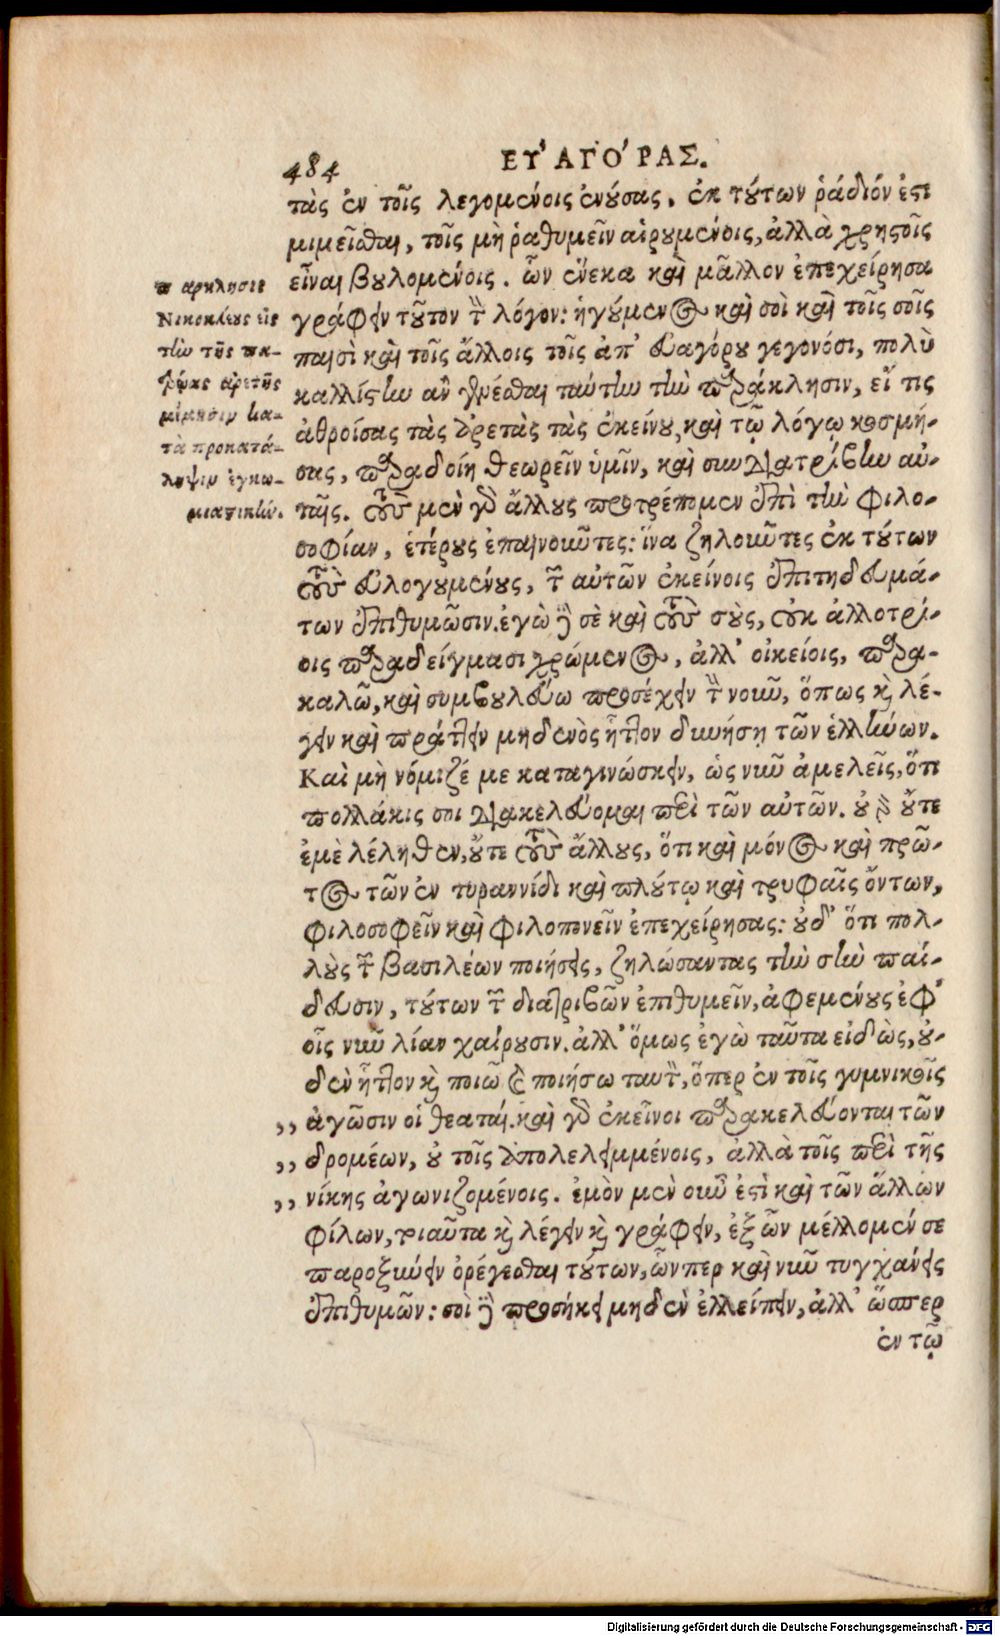 484
ΕΥ᾿ΑΓΟ΄ΡΑΣ.
τὰς ἐν τοῖς λεγομένοις ἐνούσας, ἐκ τούτων ῥάδιόν ἐστι
μιμεῖσθαι, τοῖς μὴ ῥαθυμεῖν αἱρουμένοις, ἀλλὰ χρηστοῖς
εἶναι βουλομένοις. ὧν ἕνεκα καὶ μᾶλλον ἐπεχείρησα
γράφειν τοῦτον τὸν λόγον: ἡγούμενος καὶ σοὶ καὶ τοῖς σοῖς
παισὶ καὶ τοῖς ἄλλοις τοῖς ἀπ' Εὐαγόρου γεγονόσι, πολὺ
καλλίστην ἂν γενέσθαι ταύτην τὴν παράκλησιν, εἴ τις
ἀθροίσας τὰς ἀρετὰς τὰς ἐκείνου, καὶ τῷ λόγῳ κοσμή-
σας, παραδοίη θεωρεῖν ὑμῖν, καὶ συνδιατρίβειν αὐ-
ταῖς. τοὺς μὲν γὰρ ἄλλους προτρέπομεν ἐπὶ τὴν φιλο-
σοφίαν, ἑτέρους ἐπαινοῦντες: ἵνα ζηλοῦντες ἐκ τούτων
τοὺς εὐλογουμένους, τῶν αὐτῶν ἐκείνοις ἐπιτηδευμά-
των ἐπιθυμῶσιν. ἐγὼ δὲ σὲ καὶ τοὺς σοὺς, οὐκ ἀλλοτρί-
οις παραδείγμασι χρώμενος, ἀλλ' οἰκείοις, παρα-
καλῶ, καὶ συμβουλεύω προσέχειν τὸν νοῦν, ὅπως καὶ λέ-
γειν καὶ πράττειν μηδενὸς ἧττον δυνήσῃ τῶν ἑλλήνων.
Καὶ μὴ νόμιζέ με καταγινώσκειν, ὡς νῦν ἀμελεῖς, ὅτι
πολλάκις σοι διακελεύομαι περὶ τῶν αὐτῶν. οὐ γὰρ οὔτε
ἐμὲ λέληθεν, οὔτε τοὺς ἄλλους, ὅτι καὶ μόνος καὶ πρῶ-
τος τῶν ἐν τυραννίδι καὶ πλούτῳ καὶ τρυφαῖς ὄντων,
φιλοσοφεῖν καὶ φιλοπονεῖν ἐπεχείρησας: οὐδ' ὅτι πολ-
λοὺς τῶν βασιλέων ποιήσεις, ζηλώσαντας τὴν σὴν παί-
δευσιν, τούτων τῶν διατριβῶν ἐπιθυμεῖν, ἀφεμένους ἐφ'
οἷς νῦν λίαν χαίρουσιν. ἀλλ' ὅμως ἐγὼ ταῦτα εἰδὼς, οὐ-
δὲν ἧττον καὶ ποιῶ καὶ ποιήσω ταυτὸν, ὅπερ ἐν τοῖς γυμνικοῖς
,, ἀγῶσιν οἱ θεαταί. καὶ γὰρ ἐκεῖνοι παρακελεύονται τῶν
,, δρομέων, οὐ τοῖς ἀπολελειμμένοις, ἀλλὰ τοῖς περὶ τῆς
,, νίκης ἀγωνιζομένοις. ἐμὸν μὲν οὖν ἐστὶ καὶ τῶν ἄλλων
φίλων, τοιαῦτα καὶ λέγειν καὶ γράφειν, ἐξ ὧν μέλλομέν σε
παροξύνειν ὀρέγεσθαι τούτων, ὧνπερ καὶ νῦν τυγχάνεις
ἐπιθυμῶν: σοὶ δὲ προσήκει μηδὲν ἐλλείπειν, ἀλλ' ὥσπερ
ἐν τῷ
παρκλησις
Νικοκλέους εἰς
τὴν τῆς πα-
τρῴας ἀρετῆς
μίμησιν κα-
τὰ προκατά-
ληψιν ἐγκω-
μιαστικήν.
Digitalisierung gefördert durch die Deutsche Forschungsgemeinschaft - DFG